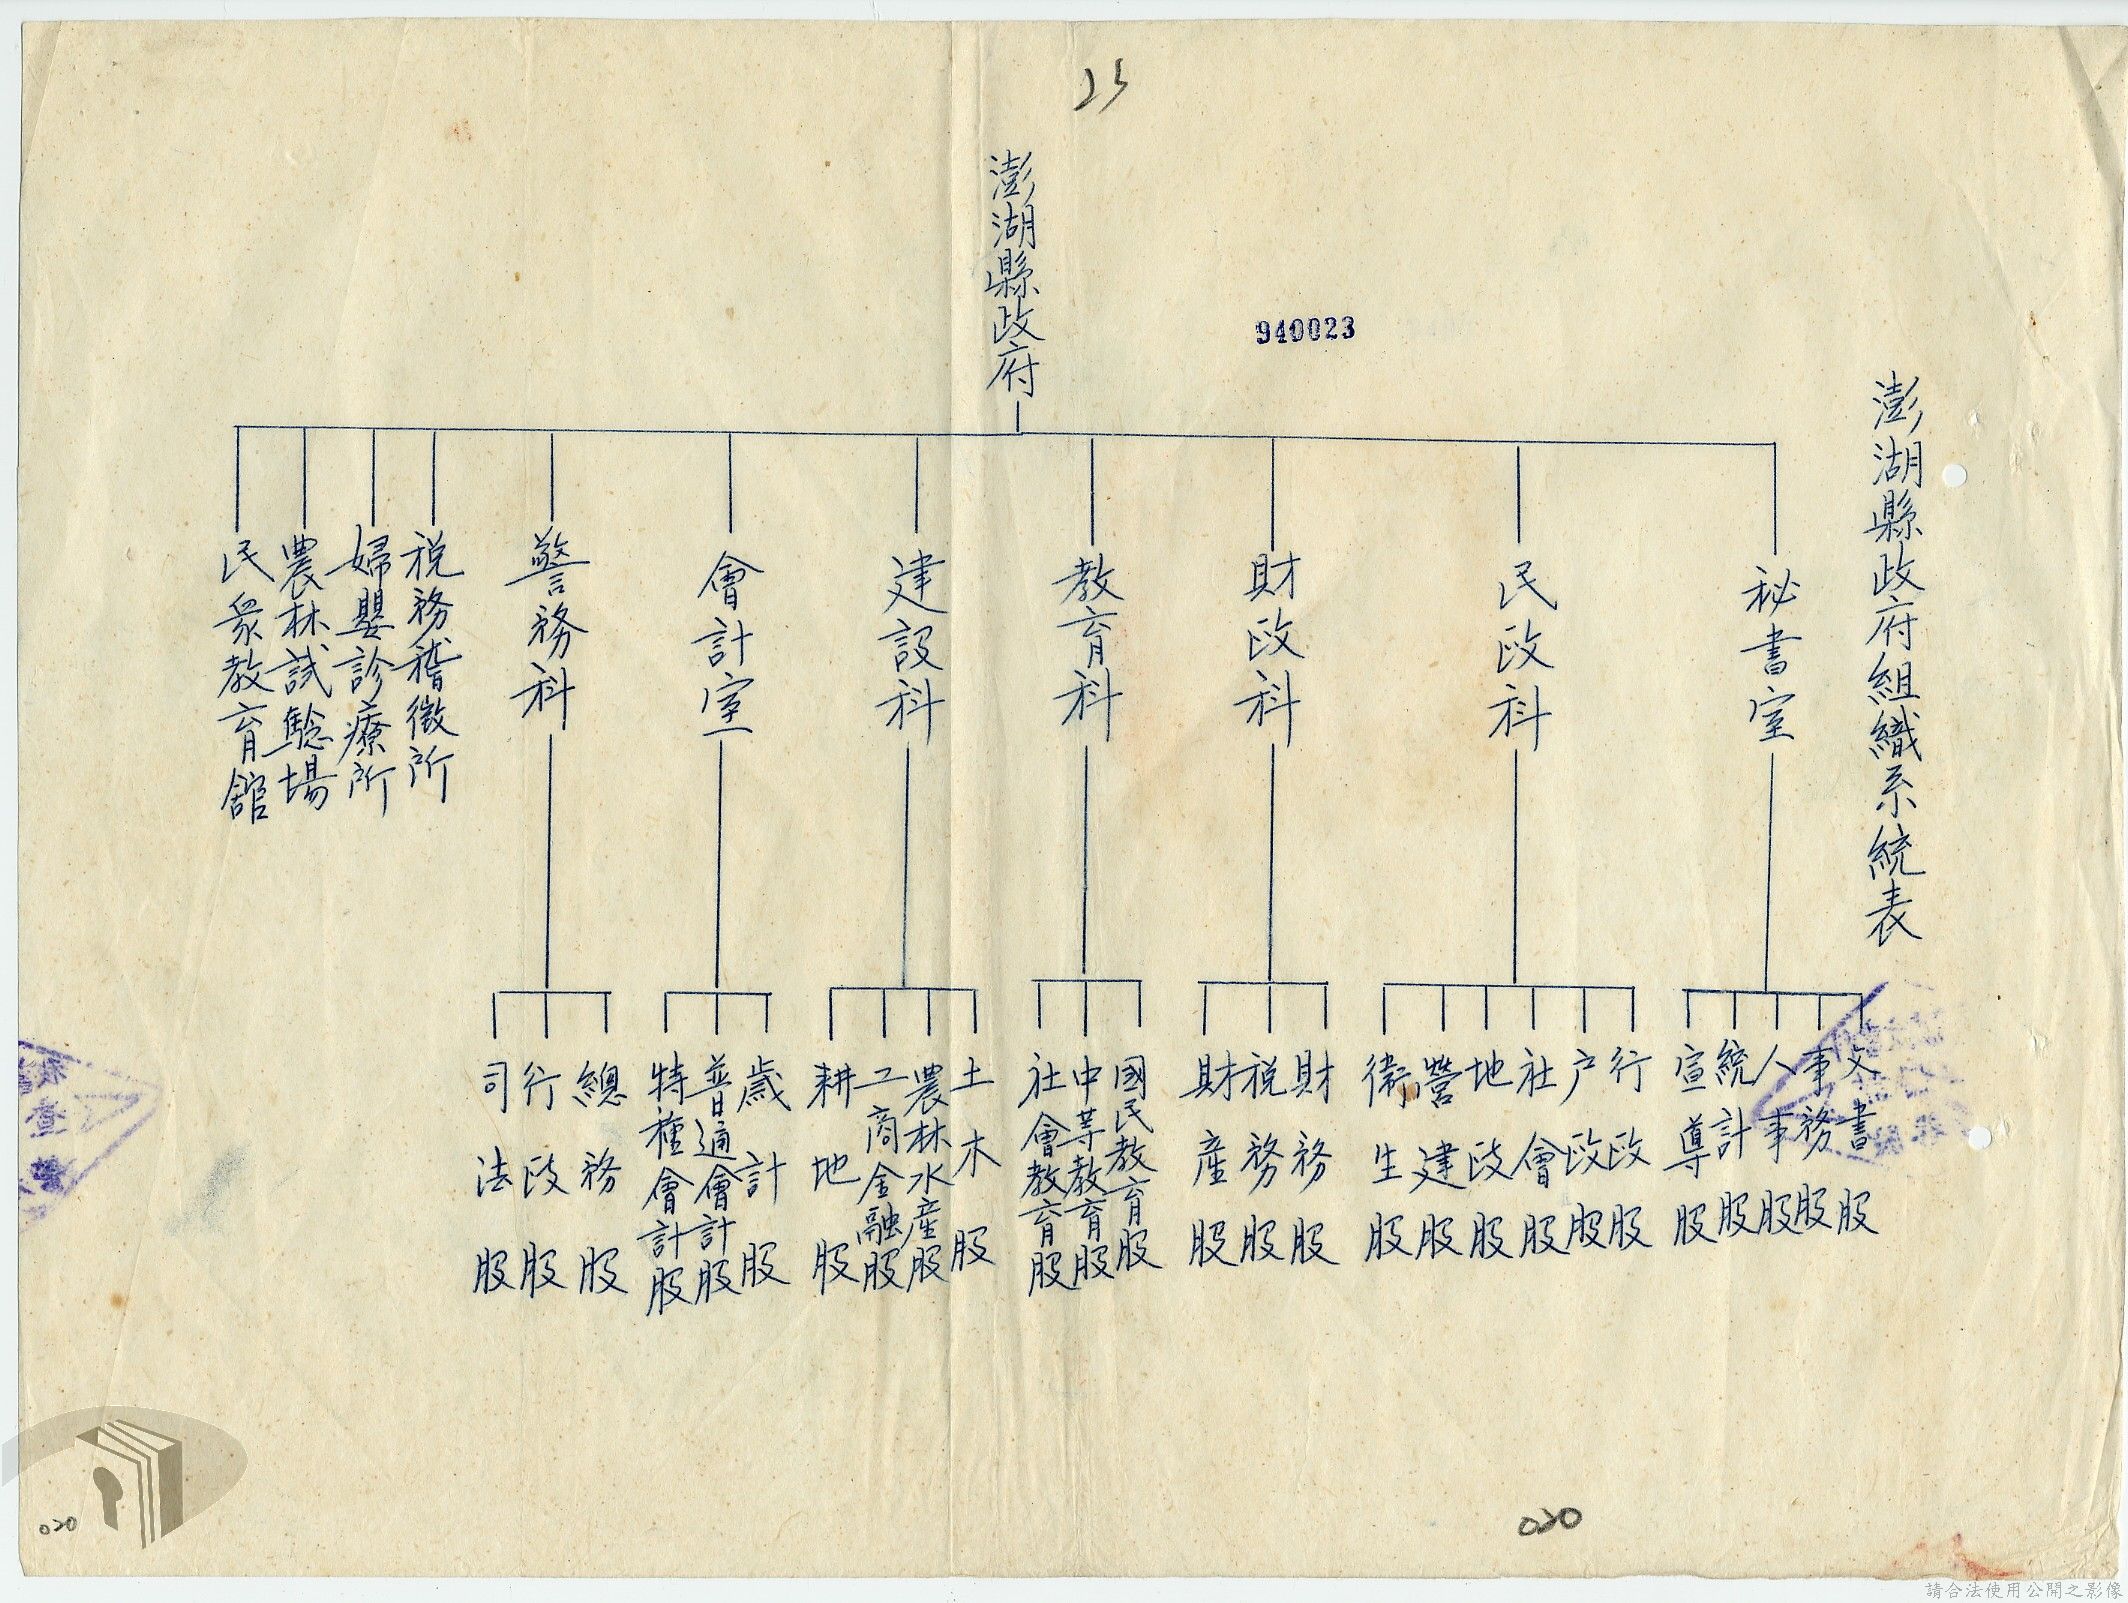 25
940023
澎湖縣政府組織系統表
澎湖縣政府
秘書室
文書股
事務股
人事股
統計股
宣導股
民政科
行政股
户政股
社會股
地政股
營建股
衛生股
財政科
財務股
税務股
財產股
教育科
國民教育股
中等教育股
社會教育股
建設科
土木股
農林水產股
工商金融股
耕地股
會計室
歲計股
普通會計股
特種會計股
警務科
總務股
行政股
司法股
税務稽徵所
婦嬰診療所
農林試驗場
民衆教育舘
020
020
請合法使用公開之影像